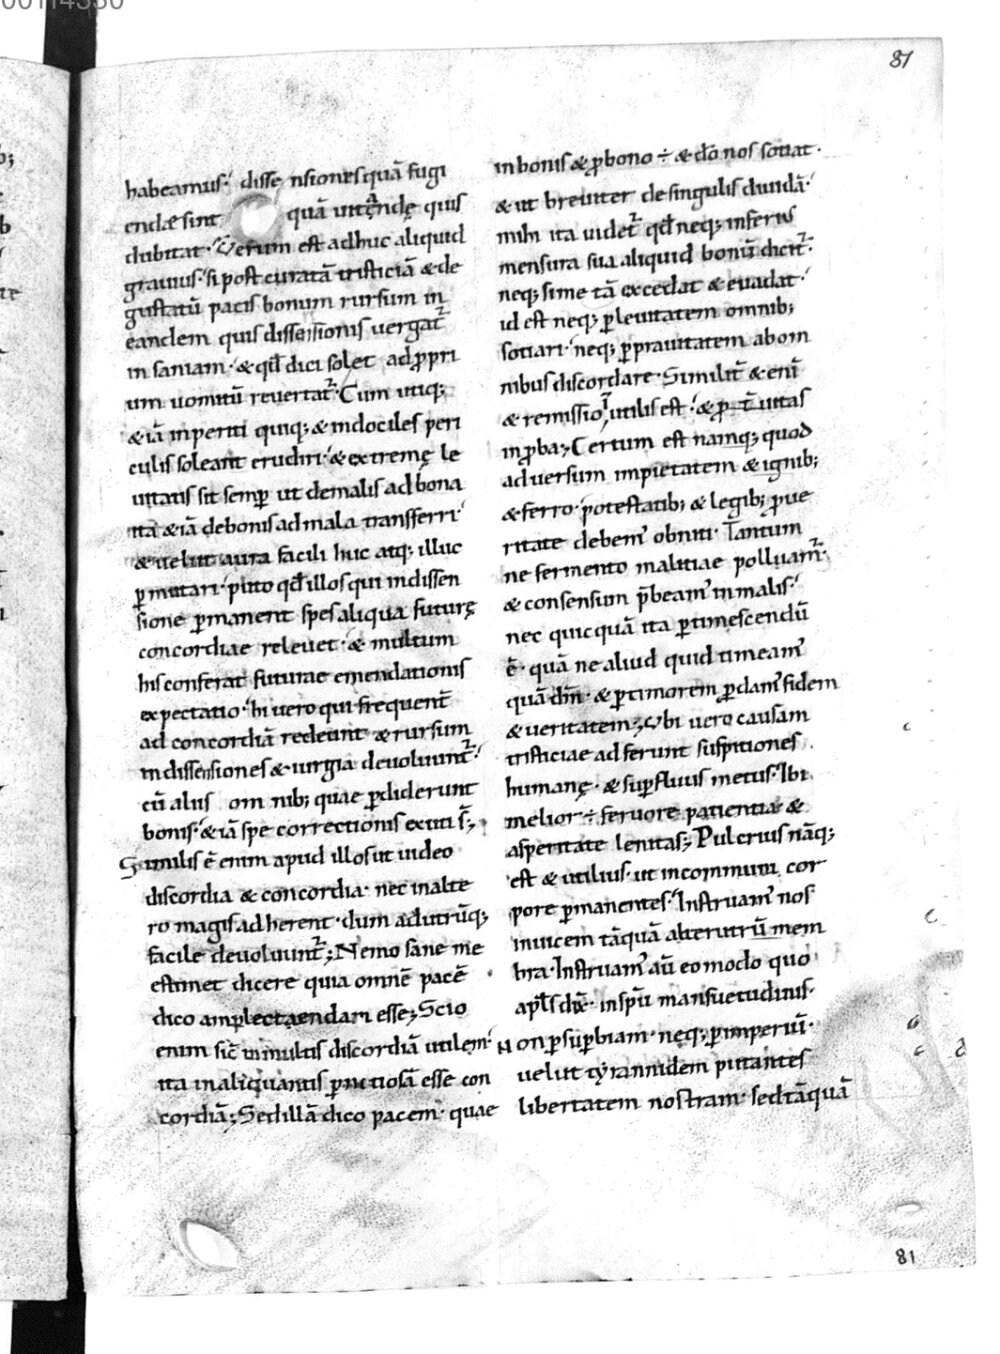 00114330
81
habeamus· dissensionesquā fugi
endæ sint quā uitande quis
dubitat· Verum est adhuc aliquid
grauius· si post curatā tristiciā & de
gustatū pacis bonum rursum in
eandem quis dissensionis uergat᷑
in saniam· & qđ dici solet ad ꝓpri
um uomitū reuertat᷑· Cum utiq;
& iā inperiti quiq; & indociles peri
culis soleant erudiri· & extremę le
uitatis sit semꝑ ut demalis ad bona
ita & iā debonis ad mala transferri·
& uelut aura facili huc atq; illuc
ꝑmutari· puto qđ illos qui indissen
sione ꝑmanent spes aliqua futurę
concordiae releuet· & multum
his conferat futurae emendationis
expectatio· hi uero qui frequent̄
ad concordiā redeunt & rursum
indissensiones & iurgia deuoluunt᷑·
cū aliis om nib; quae ꝑdiderunt
bonis· & iā spe correctionis excuti s̄;
Similis ē enim apud illos ut uideo
discordia & concordia· nec inalte
ro magis adherent· dum adutrūq;
facile deuoluunt᷑; Nemo sane me
estimet dicere quia omnē pacē
dico amplectaendam esse; Scio
enim sic̄ inmultis discordiā utilem·
ita inaliquantis ꝑnitiosā esse con
cordiā; Sed illā dico pacem· quae
inbonis & ꝓbono ÷ & dō nos sotiat·
& ut breuiter de singulis diuidā·
mihi ita uidet᷑ qđ neq; inferius
mensura sua aliquid bonū dicit᷑·
neq; si me tā excedat & euadat·
id est neq; ꝑ leuitatem omnib;
sotiari· neq; ꝑ prauitatem abom
nibus discordare· Similit̄ & enī
& remissio īutilis est· & ꝓ t̄ uitas
inꝓba; Certum est namq; quod
aduersum impietatem & ignib;
& ferro· potestatib; & legib; ꝓ ue
ritate debem᾿ obniti· Tantum
ne fermento malitiae polluam᷑·
& consensum p̄beam᾿ in malis·
nec quicquā ita ꝑtimescendū
ē· quā ne aliud quid timeam᾿
quā dm̄· & ꝑ timorem ꝑdam᾿ fidem
& ueritatem; Vbi uero causam
tristiciae ad ferunt suspitiones
humanę· & suꝑfluus metus· Ibi
melior ÷ feruore patientia· &
asperitate lenitas; Pulcrius nāq;
est & utilius· ut incommuni cor
pore ꝑmanentes· Instruam᾿ nos
inuicem tāquā alterutrū mem
bra· Instruam᾿ aū eo modo quo
apl̄s dix̄· inspū mansuetudinis·
Non ꝑ suꝑbiam· neq; ꝑ imperiū·
uelut tẏrannidem putantes
libertatem nostram· sed tāquā
81